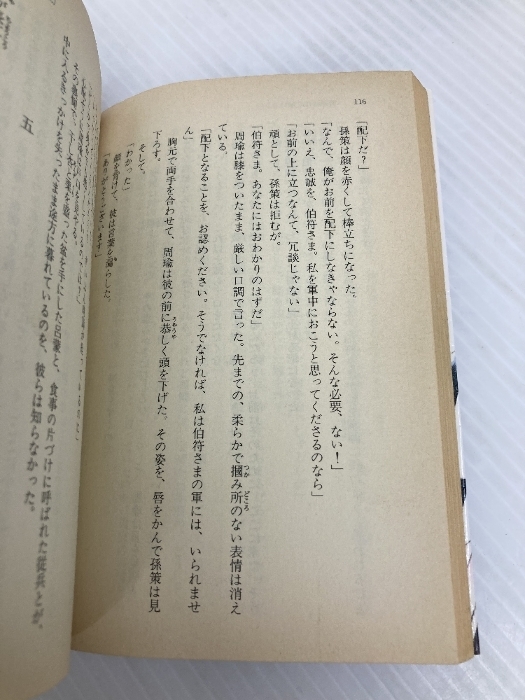 116
「配下だ?」
孫策は顔を赤くして棒立ちになった。
「なんで、俺がお前を配下にしなきゃならない。そんな必要、ない!」
「いいえ、忠誠を、伯符さま。私を軍中におこうと思ってくださるのなら」
「お前の上に立つなんて、冗談じゃない」
頑として、孫策は拒むが。
「伯符さま。あなたにはおわかりのはずだ」
周瑜は膝をついたまま、厳しい口調で言った。先までの、柔らかで掴み所のない表情は消え
ている。
「配下となることを、お認めください。そうでなければ、私は伯符さまの軍には、いられませ
ん」
胸元で両手を合わせて、周瑜は彼の前に恭しく頭を下げた。その姿を、唇をかんで孫策は見
下ろす。
そして。
「わかった」
顔を背けて、彼は言葉を漏らした。
「ありがとうございます」
五
を失ったまま途方に暮れているのを、彼らは知らなかった。